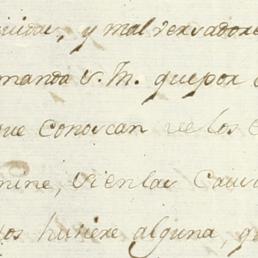 y mal versadore
manda V. M. que por
que conoscan de los
mine, vienlas Caus
los huviere alguna, q